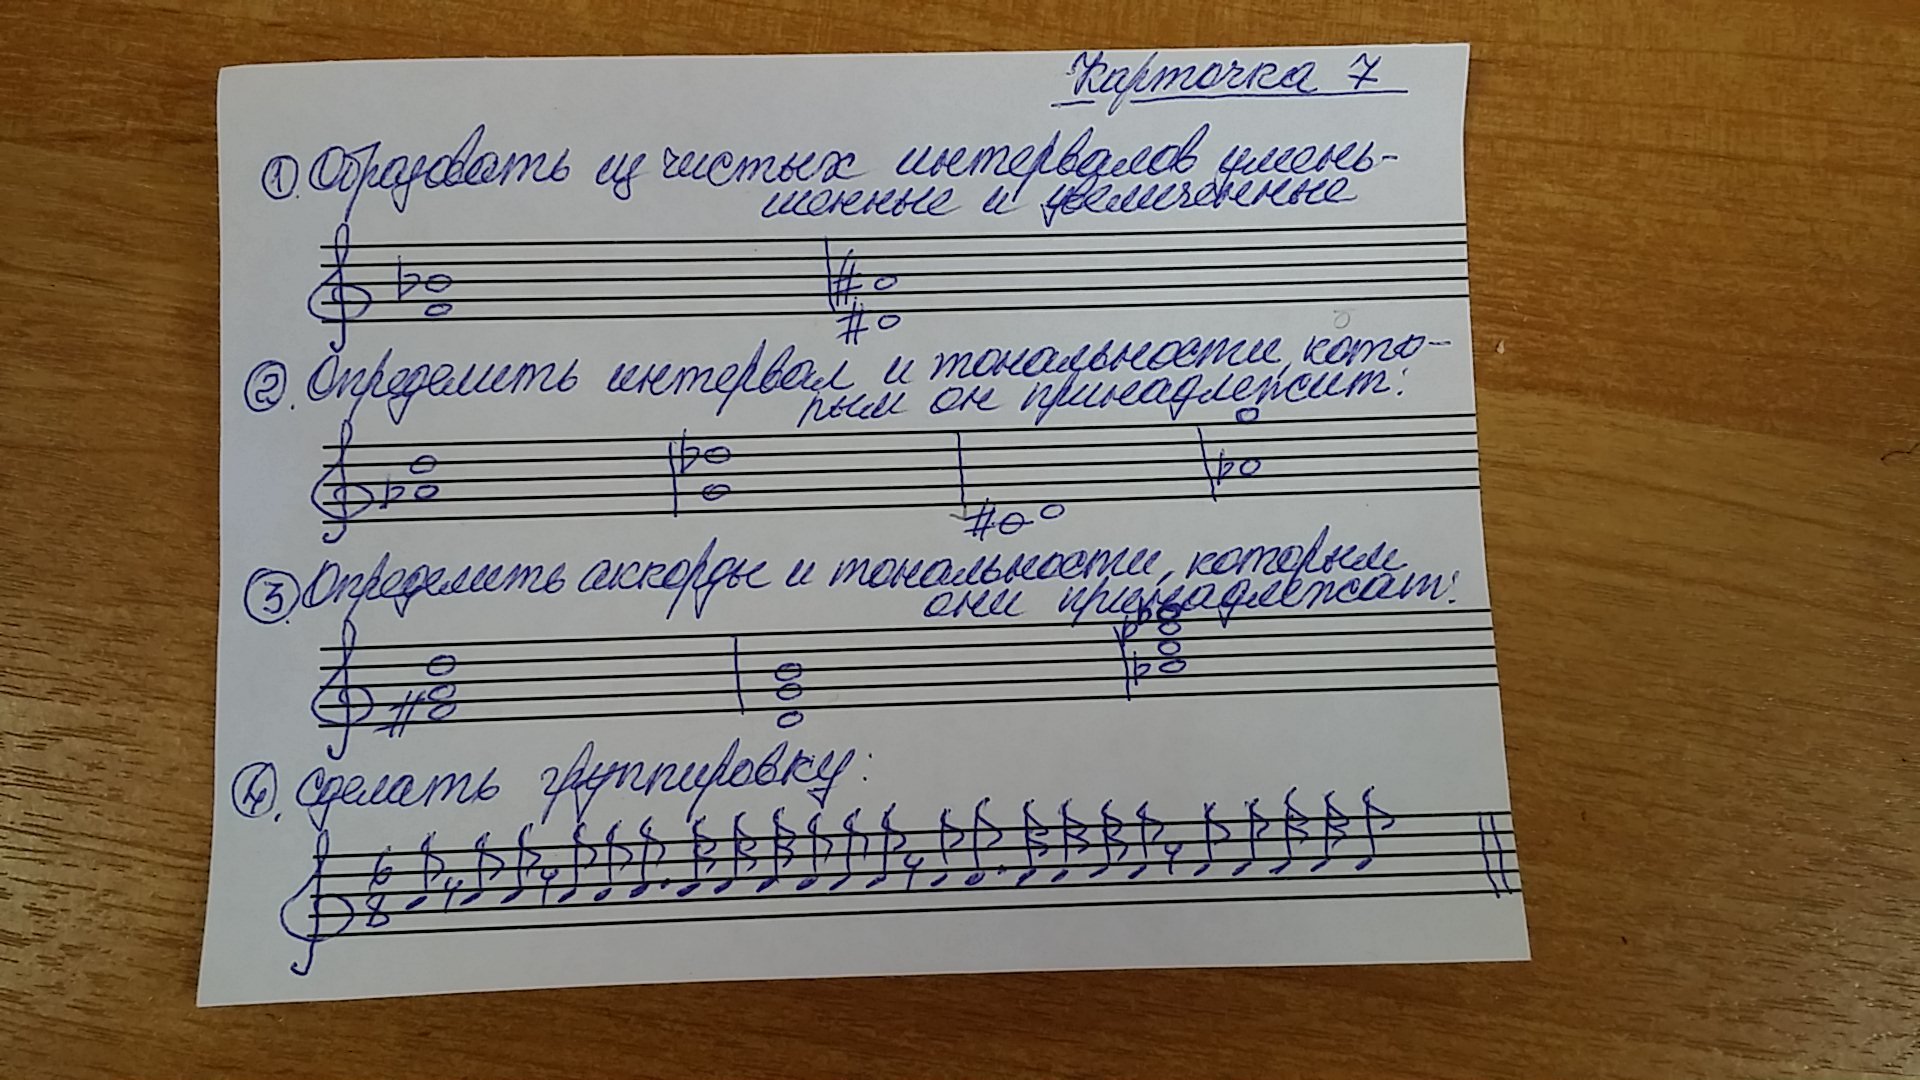 Карточка 7
1. Образовать из чистых интервалов умень-
шенные и увеличенные
2. Определить интервал и тональности, кото-
рым он принадлежит:
3. Определить аккорды и тональности, которым
они принадлежат:
4. Сделать группировку:
6
8